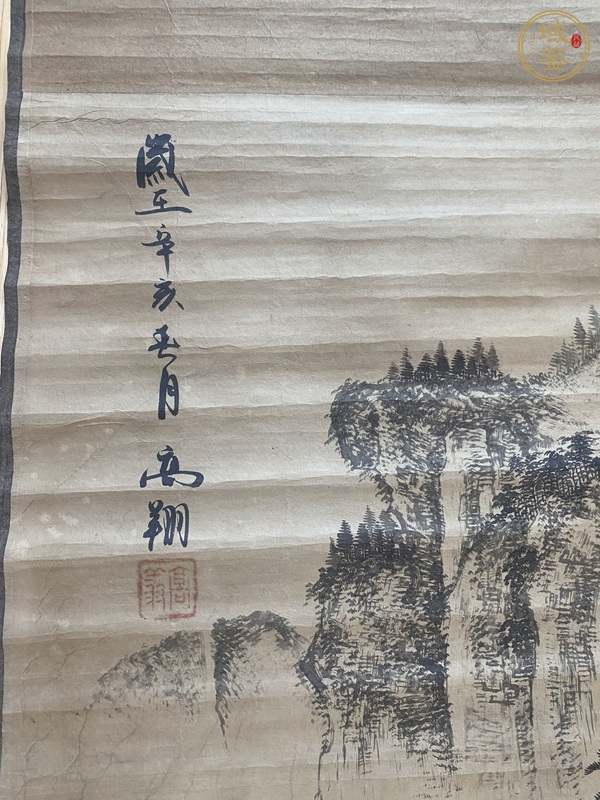 歲在辛亥春月 高翔
高翔